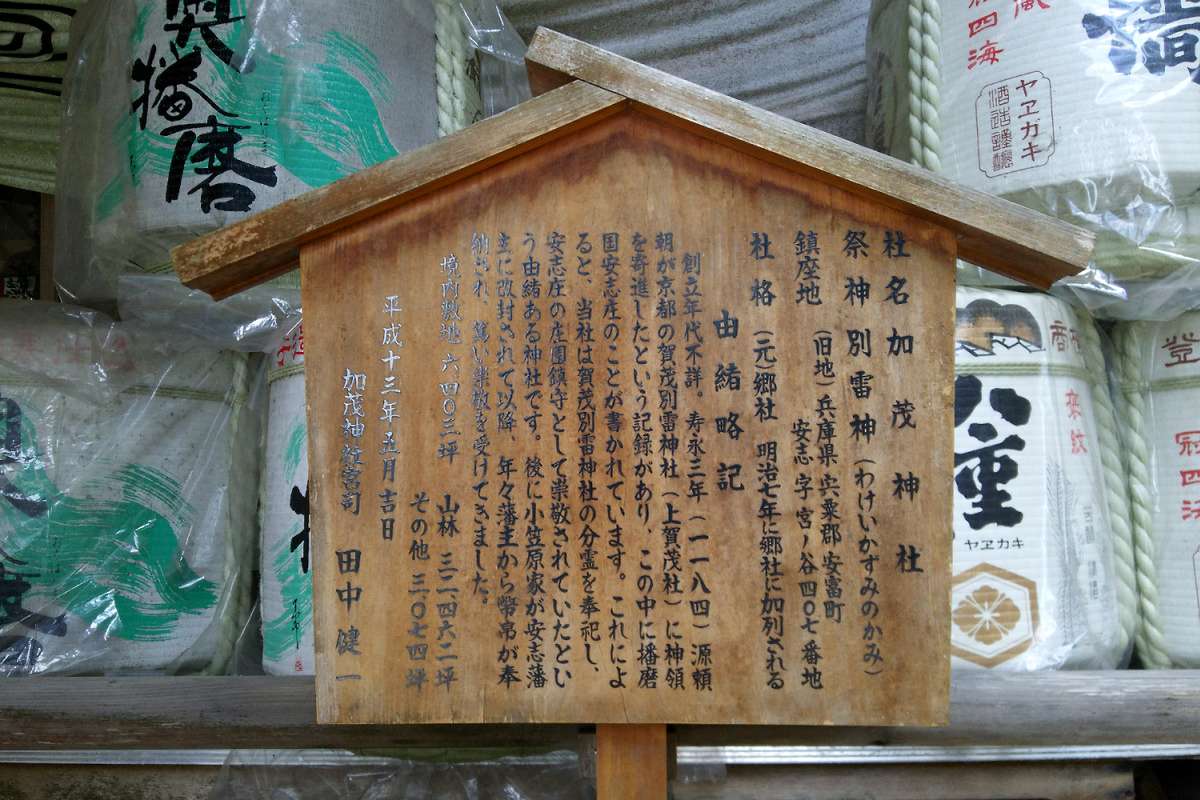 社名 加茂神社
祭神 別雷神(わけいかずみのかみ)
鎮座地 (旧地)兵庫県宍粟郡安富町
安志字宮ノ谷四〇七番地
社格 (元)郷社 明治七年に郷社に加列される
由緒略記
創立年代不詳。寿永三年(一一八四)源頼
朝が京都の賀茂別雷神社(上賀茂社)に神領
を寄進したという記録があり、この中に播磨
国安志庄のことが書かれています。これによ
ると、当社は賀茂別雷神社の分霊を奉祀し、
安志庄の庄園鎮守として崇敬されていたとい
う由緒ある神社です。後に小笠原家が安志藩
主に改封されて以降、年々藩主から幣帛が奉
納され、篤い崇敬を受けてきました。
境内敷地 六四〇三坪 山林 三二四六二坪
その他 三〇七四坪
平成十三年五月吉日
加茂神社宮司 田中健一
奥播磨
おくはりま
四海
ヤヱガキ
八重
ヤヱガキ
商標
来紋
登
冠四海